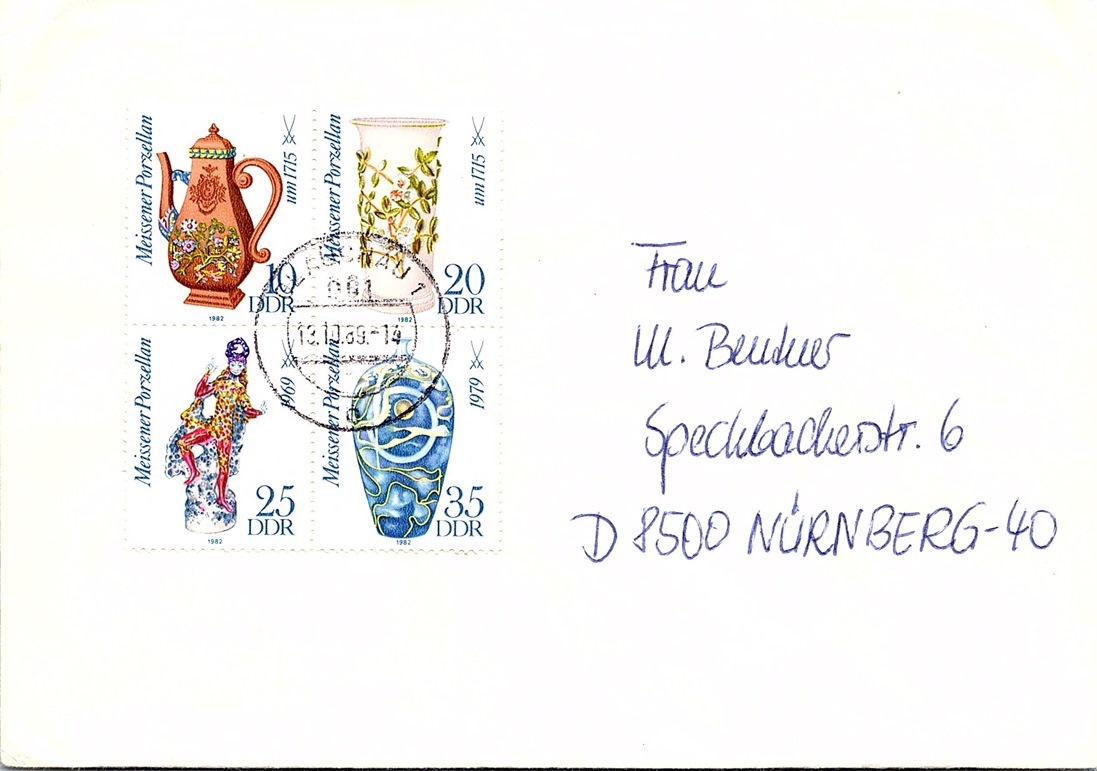 Meissener Porzellan
um 1715
10
DDR
1982
Meissener Porzellan
um 1715
20
DDR
1982
Meissener Porzellan
1969
25
DDR
1982
Meissener Porzellan
1979
35
DDR
1982
1
13.10.89.-14
c
Frau
M. Beutner
Speckbacherstr. 6
D 8500 NÜRNBERG-40